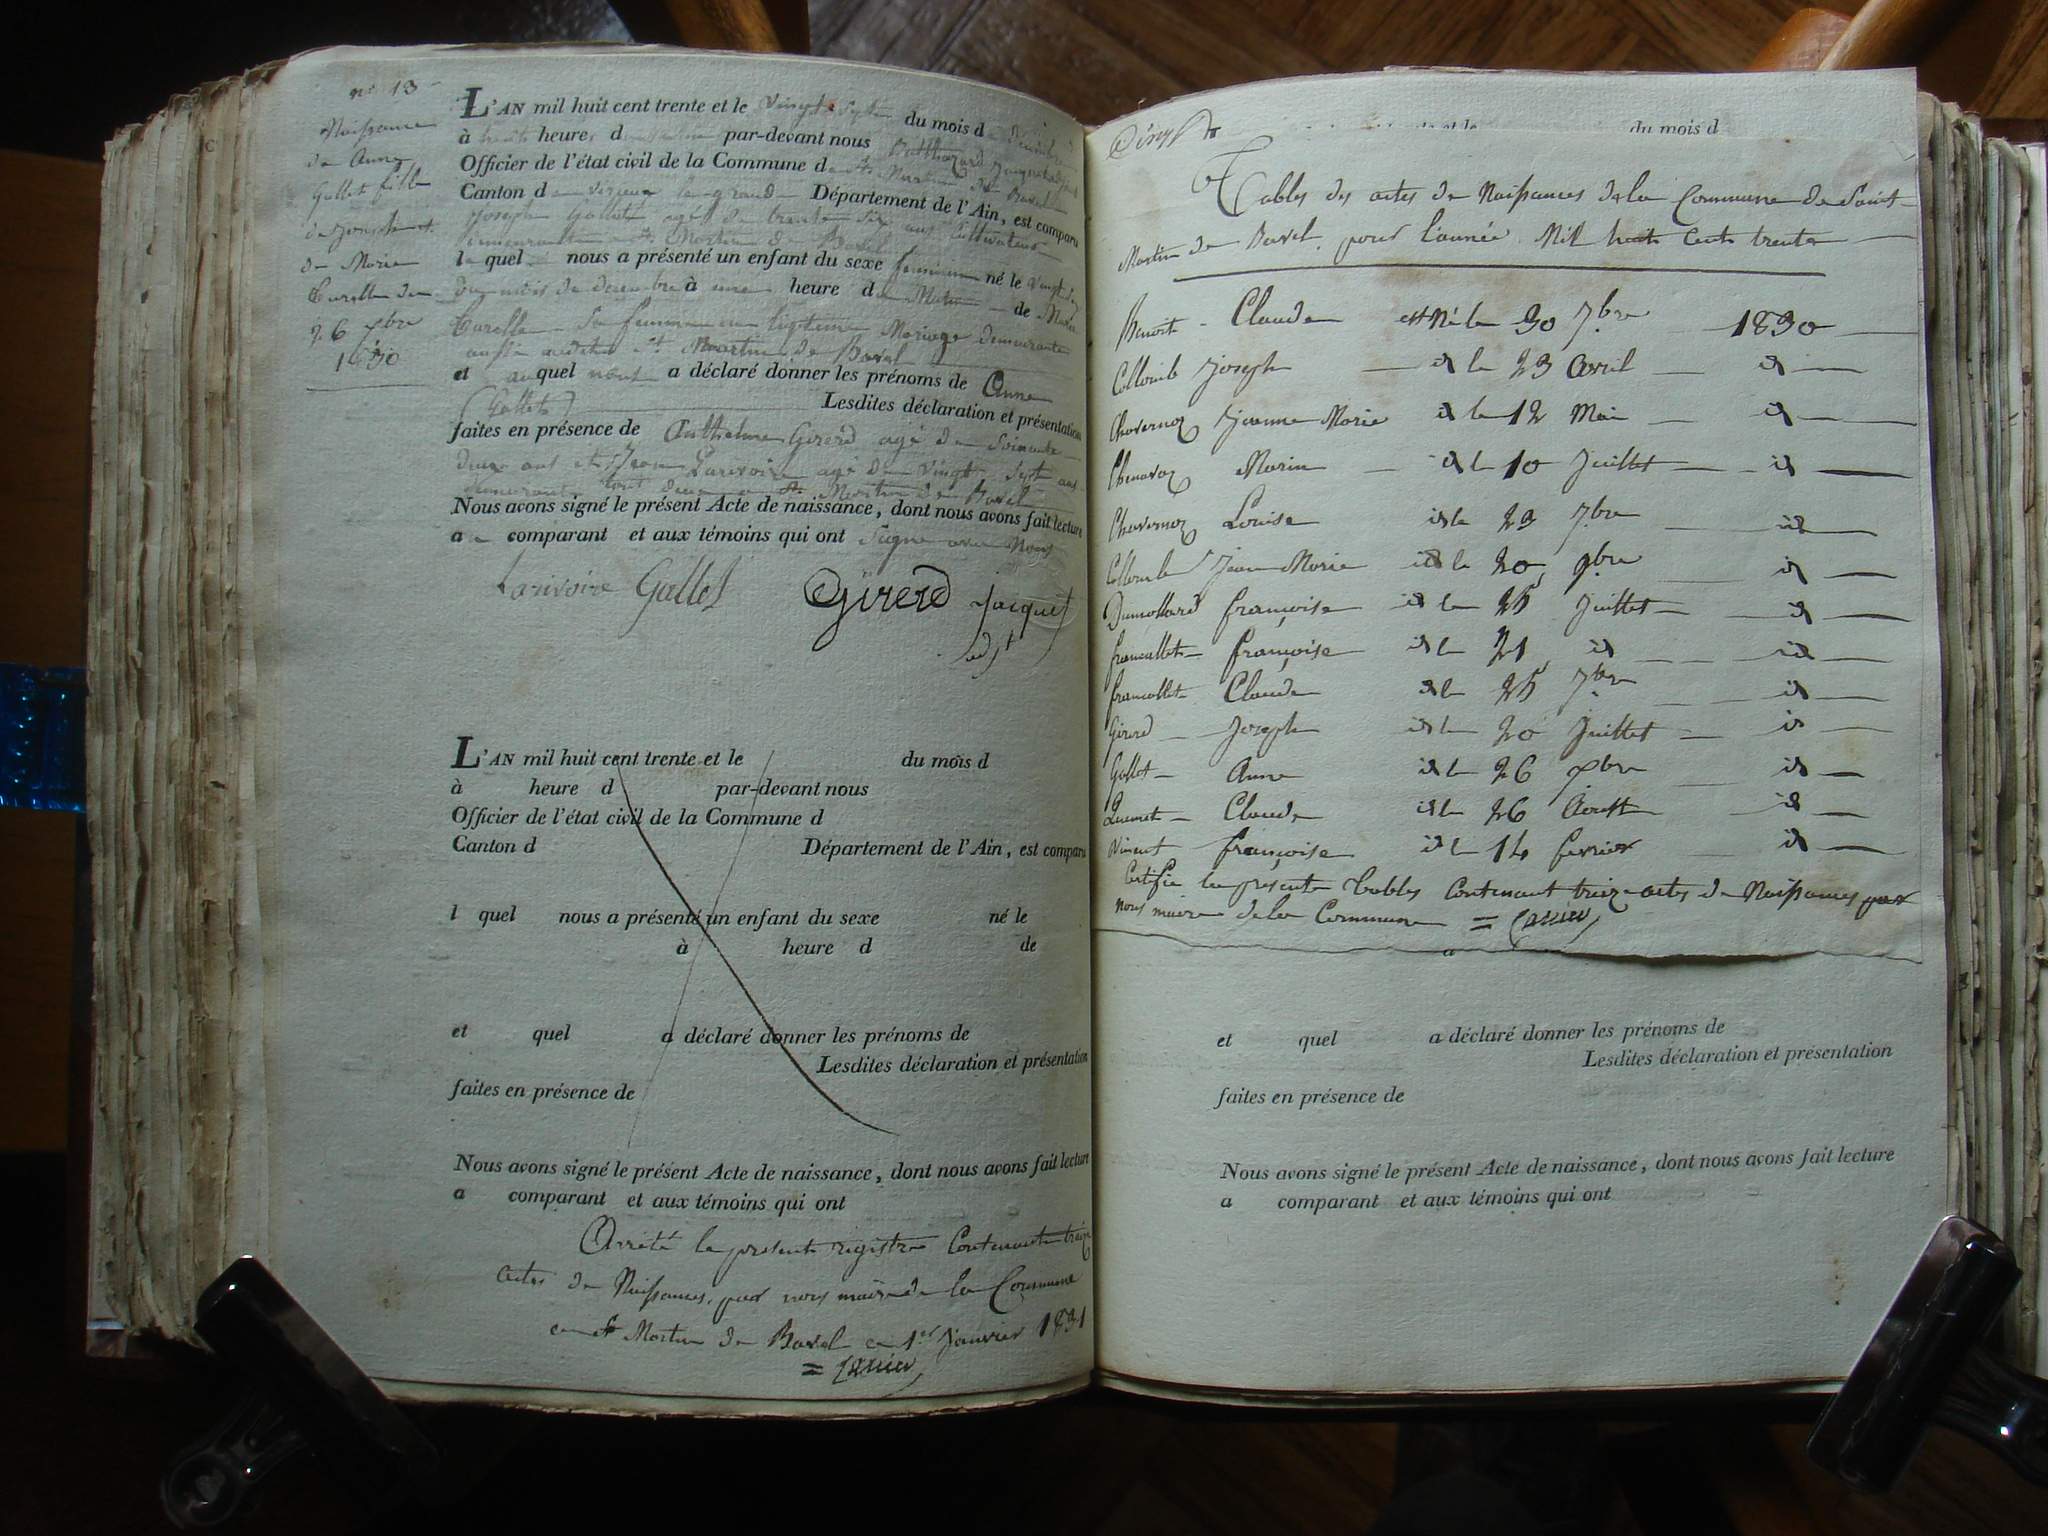 n° 13
Naissance
de Anne
Gallet fille
de Joseph et
de Marie
Curelle du
26 xbre
1830
L'AN mil huit cent trente et le vingt sept du mois d
à heure d par-devant nous Balthazard
Officier de l'état civil de la Commune de St Martin de Bavel
Canton de virieux le grand Département de l'Ain, est comparu
Joseph Gallet agé de trente six ans Cultivateur
demeurant a St Martin de Bavel
lequel nous a présenté un enfant du sexe feminin né le vingt six
du mois de decembre à une heure du Matin de Marie
Curelle sa femme en legitime Mariage demeurante
aussi audit St Martin de Bavel
et auquel a déclaré donner les prénoms de Anne
(Gallet) Lesdites déclaration et présentation
faites en présence de Anthelme Girerd agé de Soixante
deux ans et Jean Larivoire agé de vingt sept ans
demeurant tout deux a St Martin de Bavel
Nous avons signé le présent Acte de naissance, dont nous avons fait lecture
au comparant et aux témoins qui ont signé avec Nous
Larivoire Gallet Girerd Jacquet
adjt
L'AN mil huit cent trente et le du mois d
à heure d par-devant nous
Officier de l'état civil de la Commune d
Canton d Département de l'Ain, est comparu
l quel nous a présenté un enfant du sexe né le
à heure d de
et quel a déclaré donner les prénoms de
Lesdites déclaration et présentation
faites en présence de
Nous avons signé le présent Acte de naissance, dont nous avons fait lecture
a comparant et aux témoins qui ont
Arrété le present registre Contenant treize
actes de Naissances, par nous maire de la Commune
a St Martin de Bavel ce 1er Janvier 1831
du mois d
Tables des actes de Naissances de la Commune de Saint
Martin de Bavel pour l'année Mil huit Cent trente
Benoit Claude est Né le 30 7bre 1830
Collomb Joseph id le 23 avril id
Chavernoz Jeanne Marie id le 12 Mai id
Chenavaz Marin id le 10 Juillet id
Chavernoz Louise id le 23 7bre id
Collomb Jean Marie id le 20 9bre id
Dumollard françoise id le 25 Juillet id
francillet françoise id le 21 id id
francillet Claude id le 25 7bre id
Girerd Joseph id le 20 Juillet id
Gallet Anne id le 26 xbre id
Claude id le 26 Aoust id
Vincent françoise id le 14 fevrier id
Certifie la presente Tables Contenant treize actes de Naissances par
nous maire de la Commune
a
et quel a déclaré donner les prénoms de
Lesdites déclaration et présentation
faites en présence de
Nous avons signé le présent Acte de naissance, dont nous avons fait lecture
a comparant et aux témoins qui ont